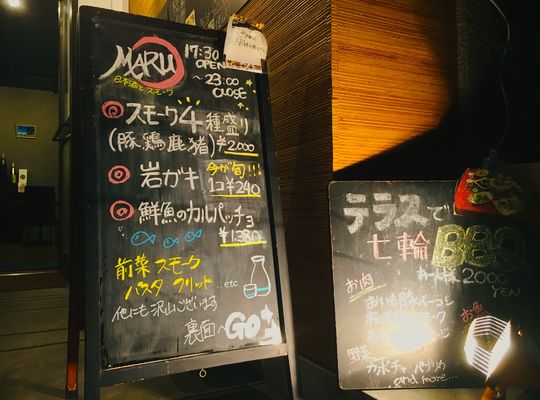 MARU
日本酒とスモーク
17:30
OPEN
～23:00
CLOSE
スモーク4種盛り
(豚、鶏、鹿、猪) ¥2,000
岩ガキ 今が旬!!!
1コ¥240
鮮魚のカルパッチョ
¥1,380
前菜 スモーク
パスタ フリット ...etc
他にも沢山ございます
裏面へGO
テラスで
七輪BBQ
お一人様2000
YEN
お肉
お魚
野菜
カボチャ パプリカ
and more...